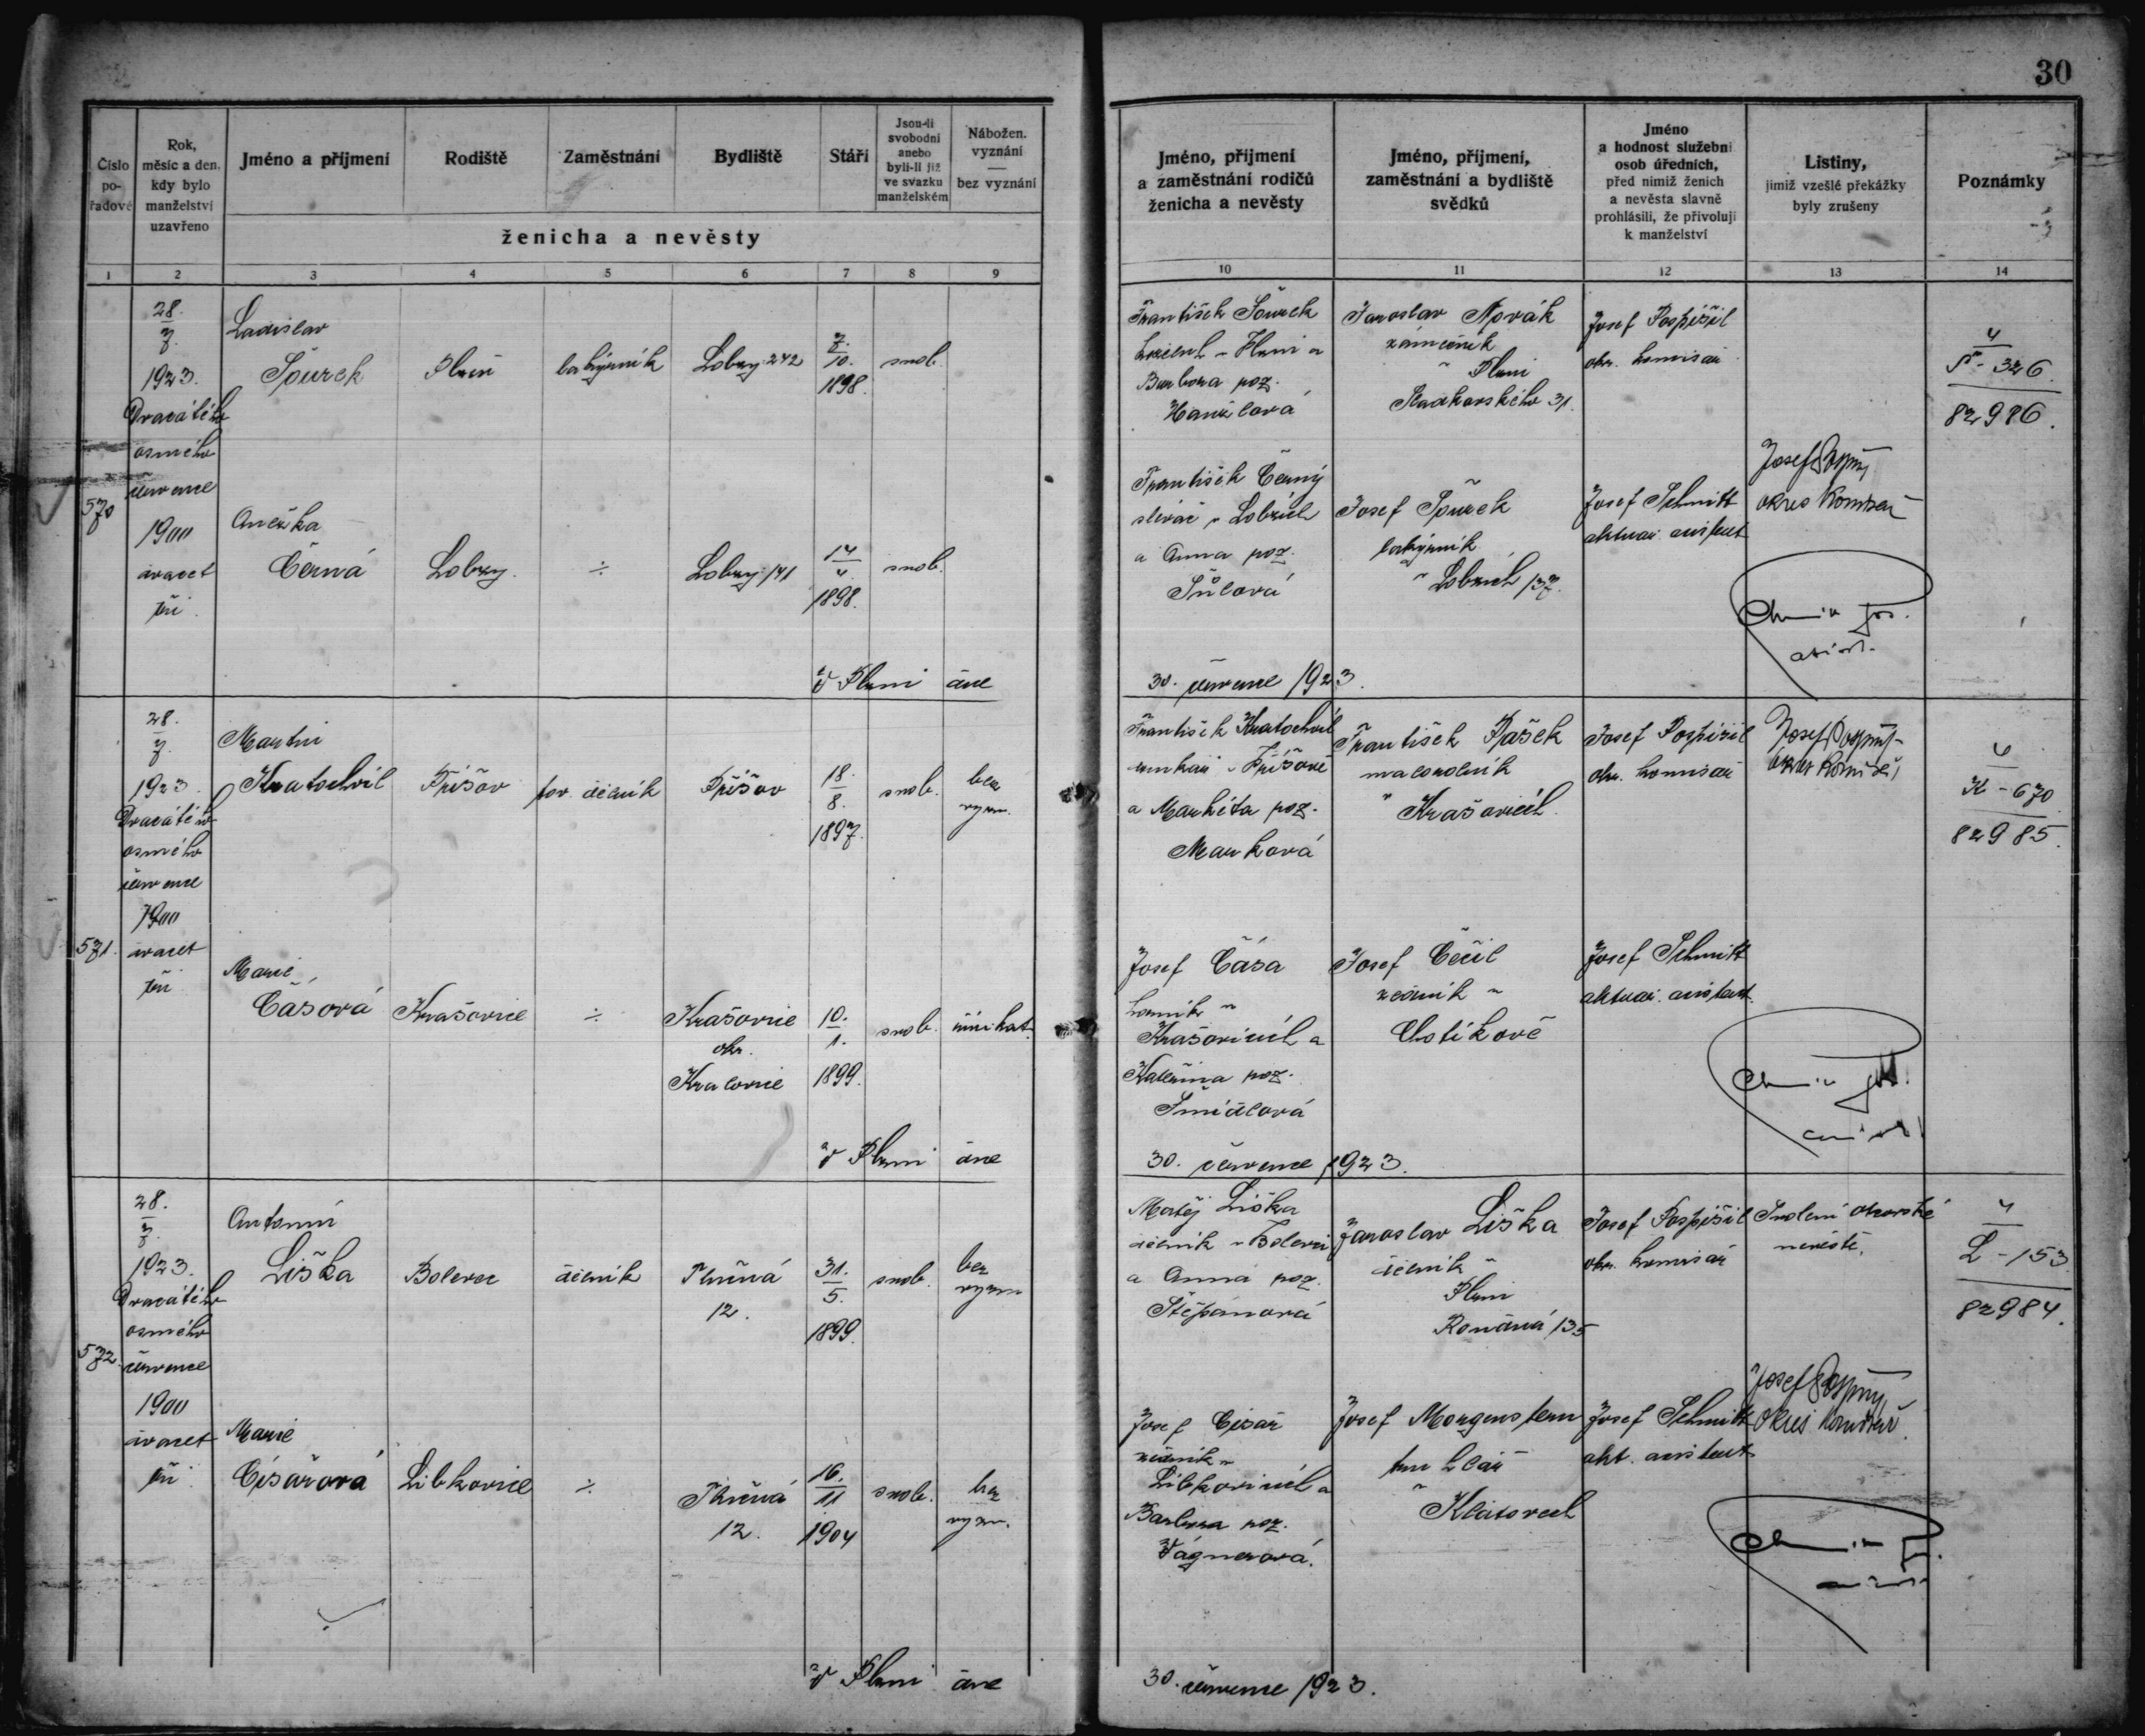 30
Číslo po-řadové
Rok, měsíc a den, kdy bylo manželství uzavřeno
Jméno a příjmení
Rodiště
Zaměstnání
Bydliště
Stáří
Jsou-li svobodni anebo byli-li již ve svazku manželském
Nábožen. vyznání — bez vyznání
ženicha a nevěsty
Jméno, příjmení a zaměstnání rodičů ženicha a nevěsty
Jméno, příjmení, zaměstnání a bydliště svědků
Jméno a hodnost služební osob úředních, před nimiž ženich a nevěsta slavně prohlásili, že přivolují k manželství
Listiny, jimiž vzešlé překážky byly zrušeny
Poznámky
1 2 3 4 5 6 7 8 9 10 11 12 13 14
570
28.
7.
1923.
Dvacátého
osmého
července
1900
dvacet
tři
Ladislav
Šourek
Plzeň
Lobzy 242
7.
10.
1898.
svob.
František Šourek
Barbora roz.
Hanzlová
Jaroslav Novák
zámečník
v Plzni
31.
Josef Pospíšil
okr. komisař
4
Š - 326
82986.
Anežka
Černá
Lobzy.
÷
Lobzy 141
14
4.
1898.
svob.
František Černý
slévač v Lobzích
a Anna roz.
Šůlová
Josef Šourek
v Lobzích 137.
Josef Schmitt
aktuár. asistent
Josef Pospíšil
okres komisař
V Plzni dne
30. července 1923.
571.
28.
7.
1923.
Dvacátého
osmého
července
1900
dvacet
tři
Martin
Kratochvíl
Příšov
tov. dělník
Příšov
18.
8.
1897.
svob.
bez
vyzn.
František Kratochvíl
v Příšově
a Markéta roz.
Marková
František Pašek
malorolník
v Krašovicích.
Josef Pospíšil
okr. komisař
Josef Pospíšil
okres komisař
4
K - 670
82985.
Marie
Čásová
Krašovice
÷
Krašovice
okr.
Kralovice
10.
1.
1899.
svob.
řím. kat.
Josef Čása
horník v
Krašovicích a
Kateřina roz.
Šmídlová
Josef Čečil
zedník v
Chotíkově
Josef Schmitt
aktuár. asistent.
V Plzni dne
30. července 1923.
572.
28.
7.
1923.
Dvacátého
osmého
července
1900
dvacet
tři
Antonín
Liška
Bolevec
dělník
Třemošná
12.
31.
5.
1899.
svob.
bez
vyzn
Matěj Liška
dělník v Bolevci
a Anna roz.
Štěpánová
Jaroslav Liška
dělník v
Plzni
Roudná 135
Josef Pospíšil
okr. komisař
Svolení otcovské
nevěstě.
4
L - 153
82984.
Marie
Císařová
Libkovice
÷
Třemošná
12.
16.
11
1904
svob.
bez
vyzn.
Josef Císař
zedník v
Libkovicích a
Barbora roz.
Vágnerová.
Josef Morgenstern
truhlář
v Klatovech
Josef Schmitt
akt. asistent
Josef Pospíšil
okres komisař.
V Plzni dne
30. července 1923.